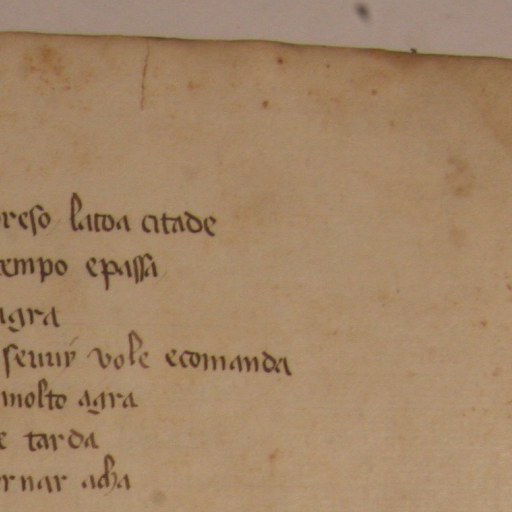 preso latoa citade
tempo epassa
agra
vole ecomanda
molto agra
e tarda
rnar acha